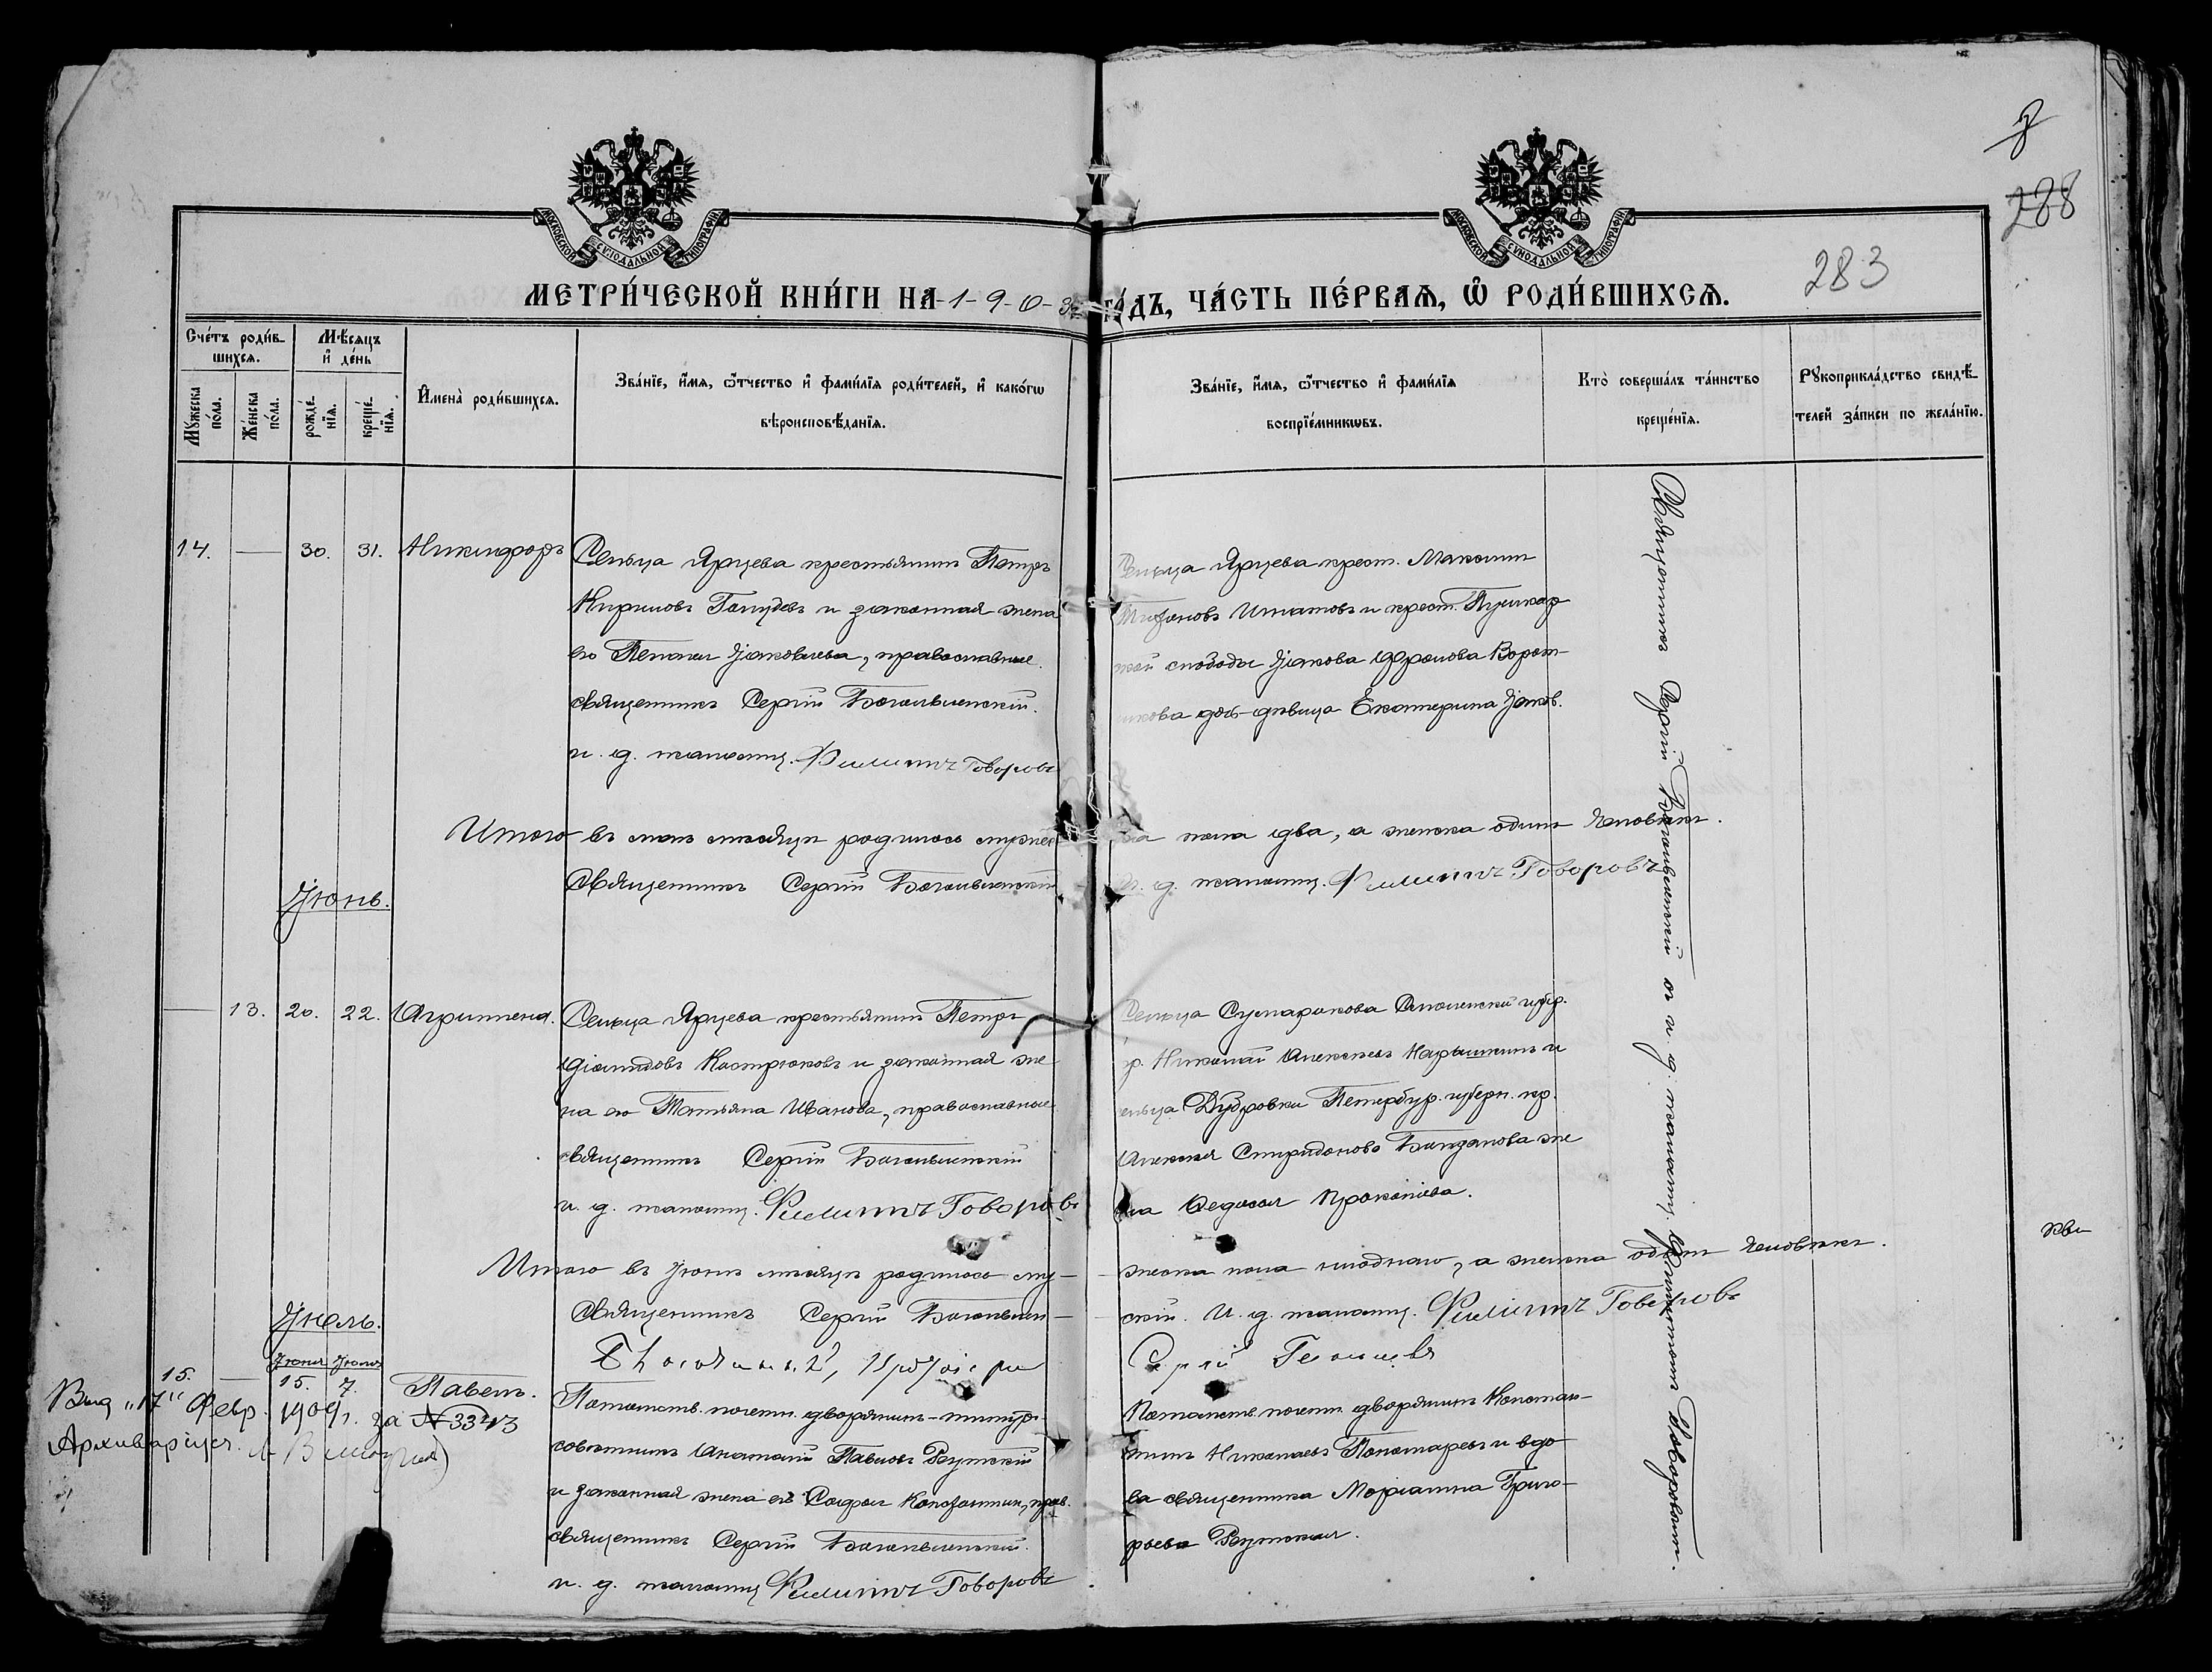 288
283
МОСКОВСКОЙ СѴНОДАЛЬНОЙ ТИПОГРАФІИ
МОСКОВСКОЙ СѴНОДАЛЬНОЙ ТИПОГРАФІИ
МЕТРИ́ЧЕСКОЙ КНИ́ГИ НА -1-9-0-3 ГО́ДЪ, ЧА́СТЬ ПЕ́РВАѦ, Ѡ҆ РОДИ́ВШИХСѦ.
Сче́тъ роди́в-
шихсѧ.
Мѣ́сѧцъ
и҆ де́нь
Мꙋ́жеска
по́ла.
Же́нска
по́ла.
рожде́-
нїѧ.
креще́-
нїѧ.
И҆мена̀ роди́вшихсѧ.
Зва́нїе, и҆́мѧ, ѻ҆́тчество и҆ фами́лїѧ роди́телей, и҆ како́гѡ
вѣроисповѣ́данїѧ.
Зва́нїе, и҆́мѧ, ѻ҆́тчество и҆ фами́лїѧ
воспрїе́мникѡвъ.
Кто̀ соверша́лъ та́инство
креще́нїѧ.
Рꙋкоприкла́дство свидѣ́-
телей за́писи по жела́нїю.
14. — 30. 31. Никифоръ
Сельца Ярцева крестьянинъ Петръ
Кириловъ Голубевъ и законная жена
его Пелагея Іаковлева, православные.
священникъ Сергій Богоявленскій.
и. д. псаломщ. Филиппъ Говоровъ
Сельца Ярцева крест. Максимъ
Игнатовъ и крест. Пушкар-
ской слободы Іакова Фролова Ворот-
никова дочь-дѣвица Екатерина Іаков.
Итого въ маѣ мѣсяцѣ родилось мужес-
ка пола два, а женска одинъ человѣкъ.
Священникъ Сергій Богоявленскій
И. д. псаломщ. Филиппъ Говоровъ
Іюнь.
— 13. 20. 22. Агриппина.
Сельца Ярцева крестьянинъ Петръ
Діомидовъ Костроковъ и законная же-
на его Татьяна Иванова, православные
священникъ Сергій Богоявленскій
и. д. псаломщ. Филиппъ Говоровъ
Сельца Сумарокова Смоленской губер.
кр. Николай Алексѣевъ Нарышкинъ и
сельца Дубровки Петербур. губерн. кр.
Алексея Спиридонова Богданова же-
на Федосья Прокопіева.
Итого въ Іюнѣ мѣсяцѣ родилось му-
жеска пола ниоднаго, а женска одинъ человѣкъ.
Священникъ Сергій Богоявлен-
скій. И. д. псаломщ. Филиппъ Говоровъ
Іюль.
Сергій
Іюня Іюля
15. — 15. 7. Павелъ.
Потомств. почетн. дворянинъ-титуляр.
совѣтникъ Анатолій Павловъ Реутскій
и законная жена его Софья Константин., прав.
священникъ Сергій Богоявленскій.
и. д. псаломщ. Филиппъ Говоровъ
Потомств. почетн. дворянинъ Констан-
тинъ Николаевъ Пономаревъ и вдо-
ва священника Маріанна Григо-
рьева Реутская.
Выд "17" Февр. 1909 г. за № 3343
Архиваріусъ
Священникъ Сергій Богоявленскій съ и. д. псаломщ. Филиппомъ Говоровымъ.